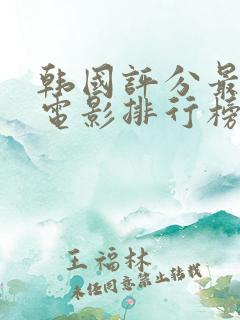 韩國評分最
電影排行榜
王福林
未经同意禁止转载